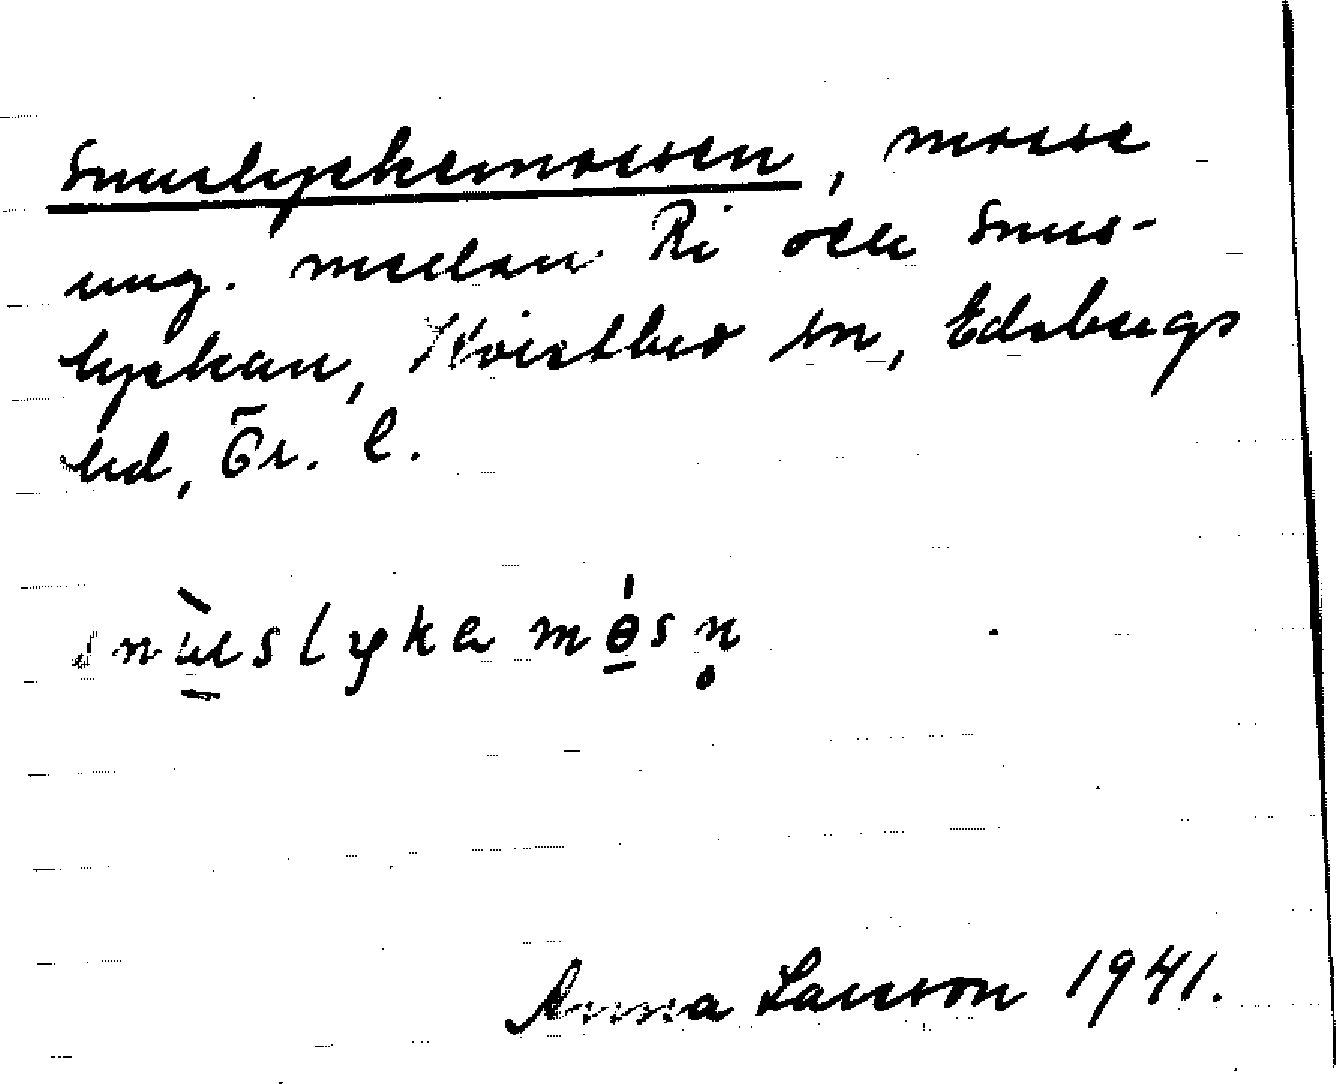 Snuslyckemossen, mosse
ung. mellan Ri och Snus-
lyckan, Kvistbro sn, Edsbergs
hd, Ör. l.
snu̠̇slyka mө̠́sn̥
Anna Larsson 1941.